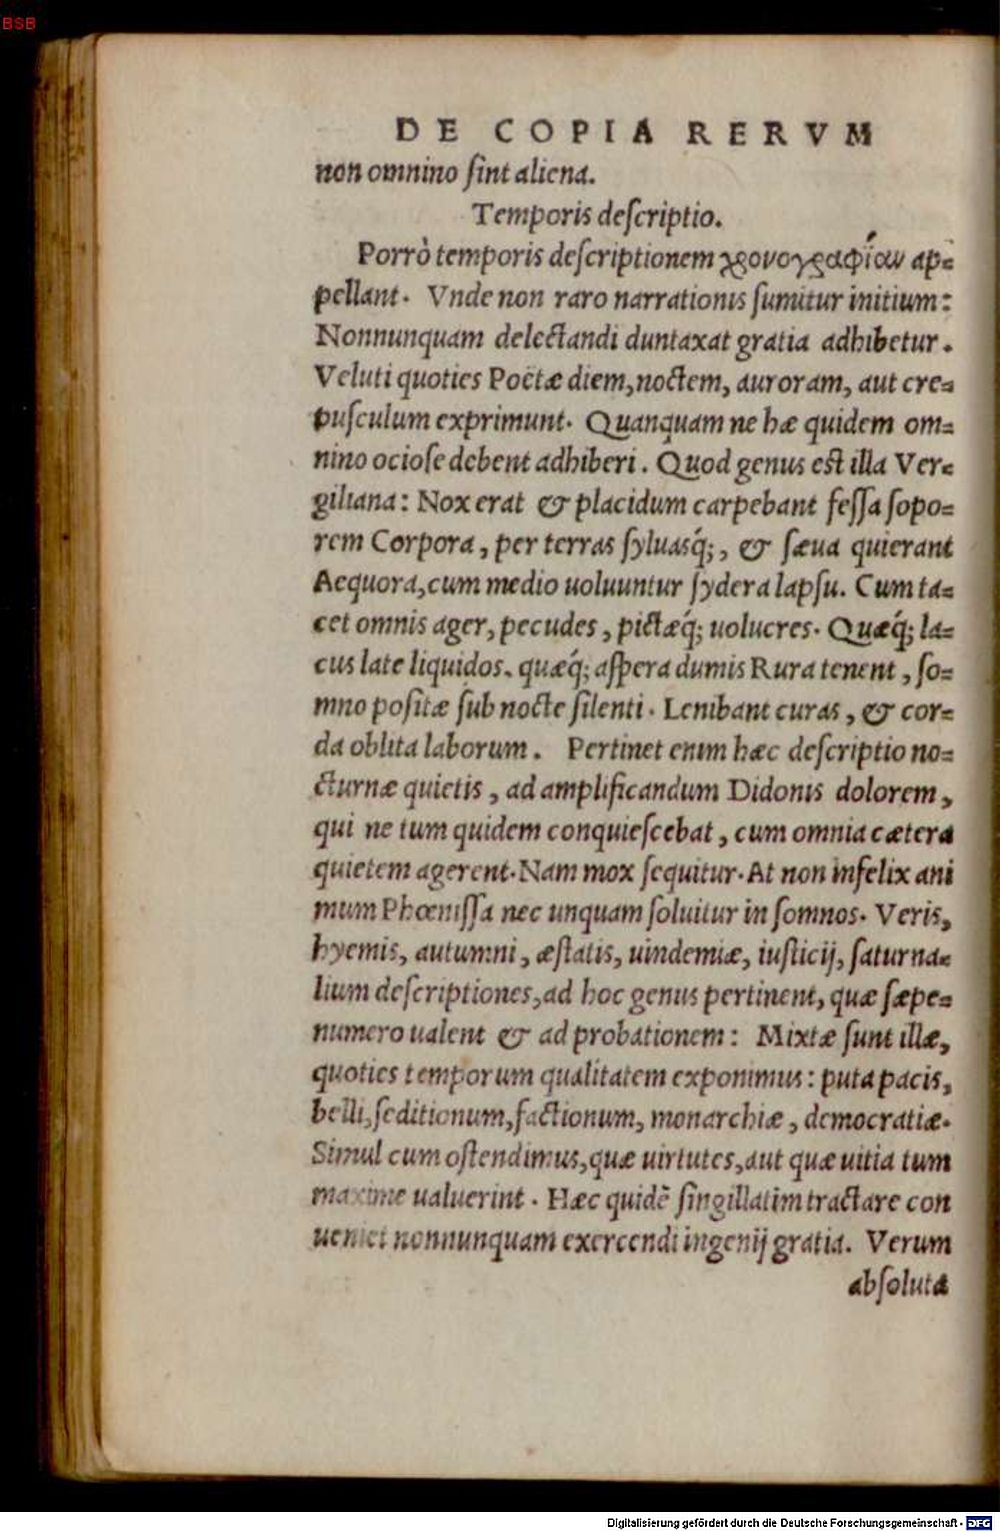 BSB
DE COPIA RERVM
non omnino ſint aliena.
Temporis deſcriptio.
Porrò temporis deſcriptionem χρονογραφίαν ap=
pellant. Vnde non raro narrationis ſumitur initium:
Nonnunquam delectandi duntaxat gratia adhibetur.
Veluti quoties Poëtæ diem, noctem, auroram, aut cre=
puſculum exprimunt. Quanquam ne hæ quidem om=
nino ocioſe debent adhiberi. Quod genus est illa Ver=
giliana: Nox erat & placidum carpebant feſſa ſopo=
rem Corpora, per terras ſyluasq́;, & ſæua quierant
Aequora, cum medio uoluuntur ſydera lapſu. Cum ta=
cet omnis ager, pecudes, pictæq́; uolucres. Quæq́; la=
cus late liquidos. quæq́; aſpera dumis Rura tenent, ſo=
mno poſitæ ſub nocte ſilenti. Lenibant curas, & cor=
da oblita laborum. Pertinet enim hæc deſcriptio no=
cturnæ quietis, ad amplificandum Didonis dolorem,
qui ne tum quidem conquieſcebat, cum omnia cætera
quietem agerent. Nam mox ſequitur. At non infelix ani
mum Phœniſſa nec unquam ſoluitur in ſomnos. Veris,
hyemis, autumni, æſtatis, uindemiæ, iuſticij, ſaturna=
lium deſcriptiones, ad hoc genus pertinent, quæ ſæpe=
numero ualent & ad probationem: Mixtæ ſunt illæ,
quoties temporum qualitatem exponimus: puta pacis,
belli, ſeditionum, factionum, monarchiæ, democratiæ.
Simul cum oſtendimus, quæ uirtutes, aut quæ uitia tum
maxime ualuerint. Hæc quidē ſingillatim tractare con
ueniet nonnunquam exercendi ingenij gratia. Verum
abſoluta
Digitalisierung gefördert durch die Deutsche Forschungsgemeinschaft - DFG